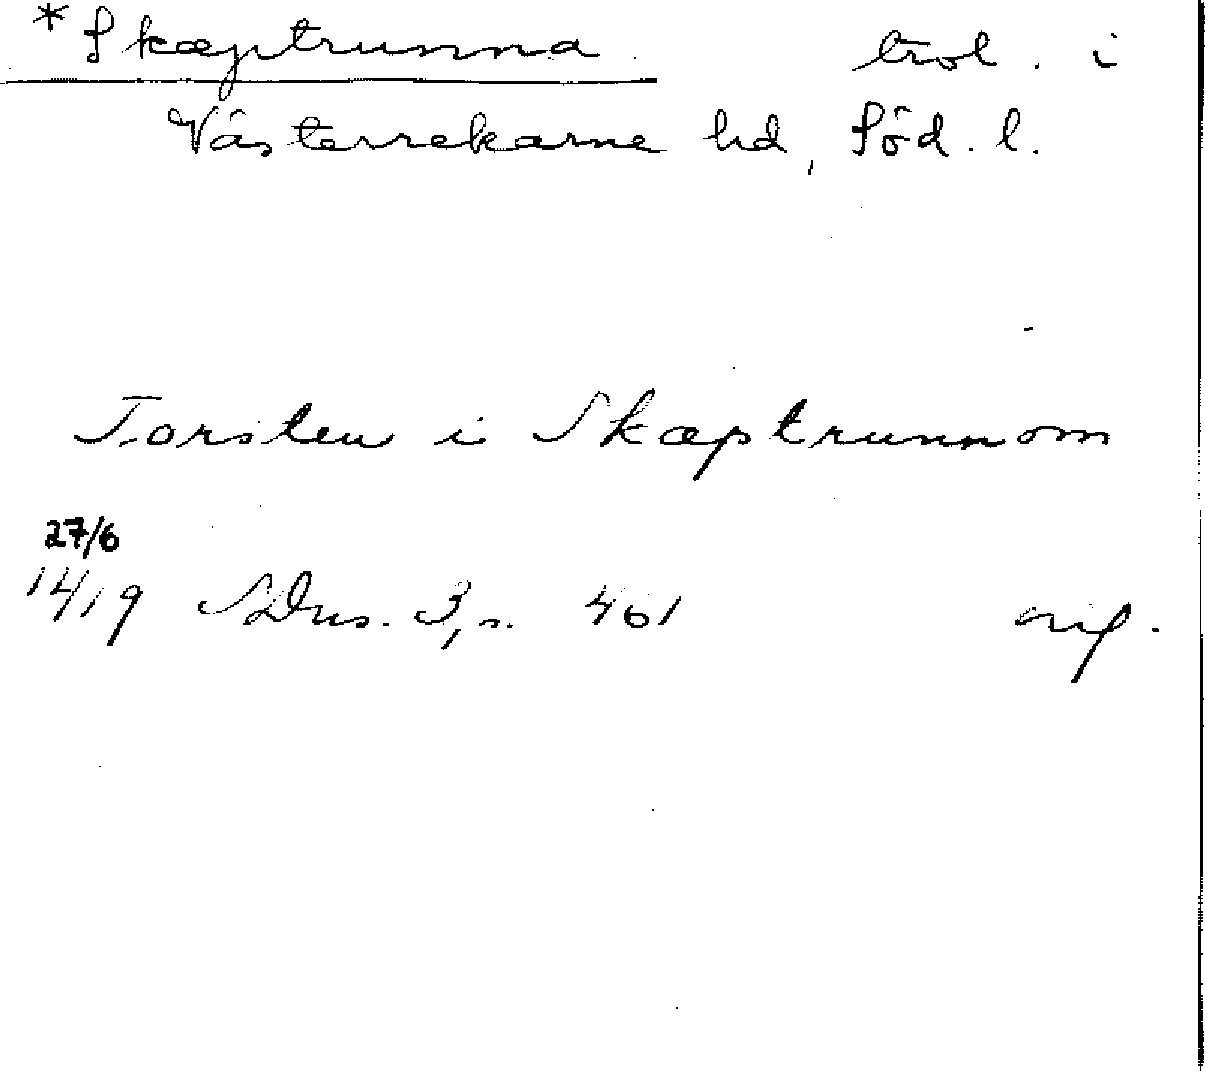 *Skæptrunna trol. i
Västerrekarne hd, Söd. l.
Torsten i Skæptrunnom
27/6
1419 SDns. 3, s. 461 orig.